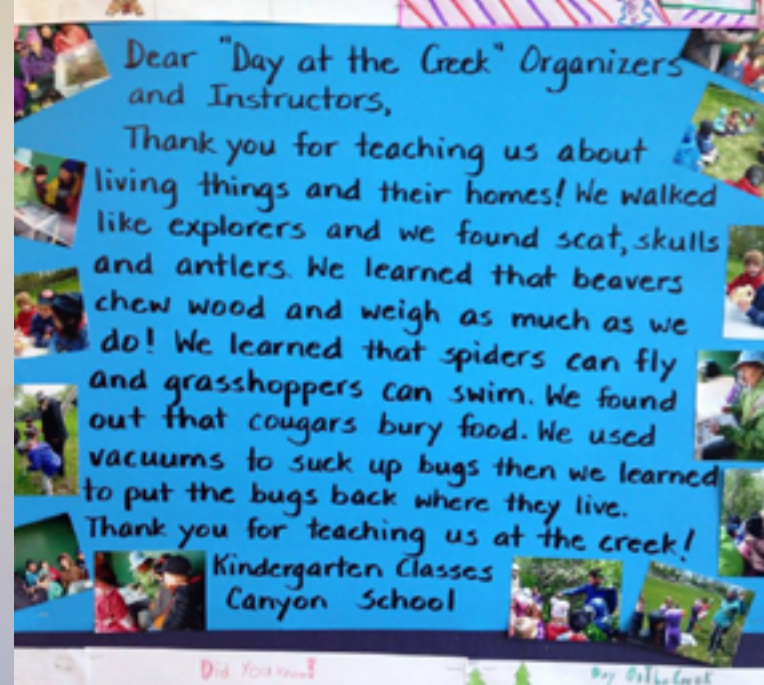 Dear "Day at the Creek" Organizers
and Instructors,
Thank you for teaching us about
living things and their homes! We walked
like explorers and we found scat, skulls
and antlers. We learned that beavers
chew wood and weigh as much as we
do! We learned that spiders can fly
and grasshoppers can swim. We found
out that cougars bury food. We used
vacuums to suck up bugs then we learned
to put the bugs back where they live.
Thank you for teaching us at the creek!
Kindergarten Classes
Canyon School
Did You know?
Day